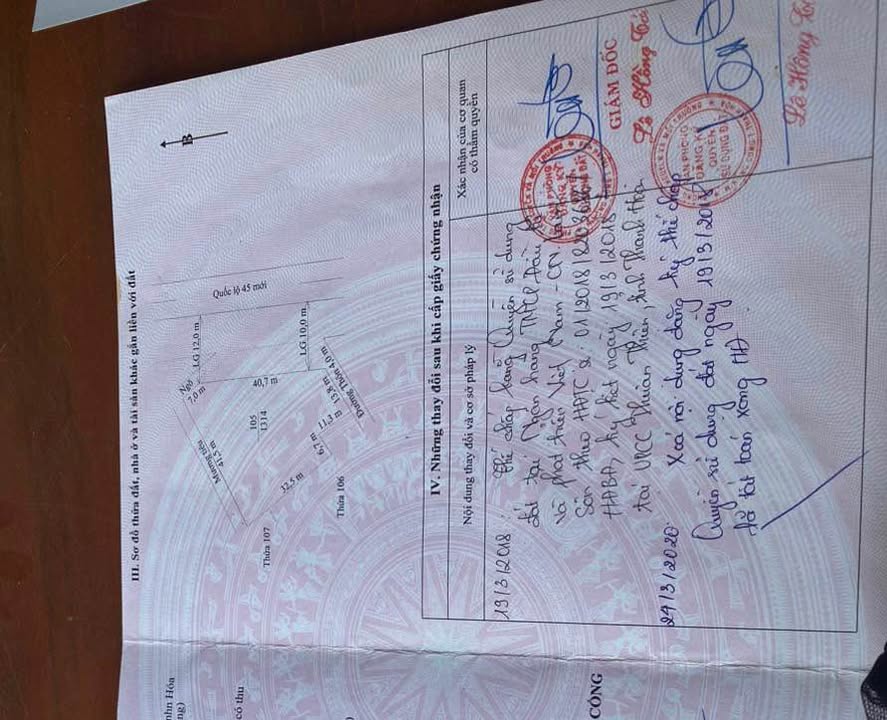 III. Sơ đồ thửa đất, nhà ở và tài sản khác gắn liền với đất
B
Quốc lộ 45 mới
LG 12,0 m
LG 10,0 m
Ngõ
7,0 m
40,7 m
Mương tiêu
41,5 m
105
1314
13,8 m
Đường Thôn 4,0 m
11,3 m
6,7 m
32,5 m
Thửa 107
Thửa 106
IV. Những thay đổi sau khi cấp giấy chứng nhận
Nội dung thay đổi và cơ sở pháp lý
Xác nhận của cơ quan
có thẩm quyền
19/3/2018: Thế chấp bằng Quyền sử dụng
đất tại Ngân hàng TMCP Đầu tư
và phát triển Việt Nam - CN
Sơn theo HĐTC số: 01/2018/
HĐBĐ, ký kết ngày 19/3/2018
tại VPCC Thuần Thiên, tỉnh Thanh Hóa.
GIÁM ĐỐC
Lê Hồng
24/3/2020: Xoá nội dung đăng ký thế chấp
Quyền sử dụng đất ngày 19/3/2018
đã tất toán xong HĐ
VĂN PHÒNG
ĐĂNG KÝ
QUYỀN
SỬ DỤNG ĐẤT
Lê Hồng
CÔNG
có thu